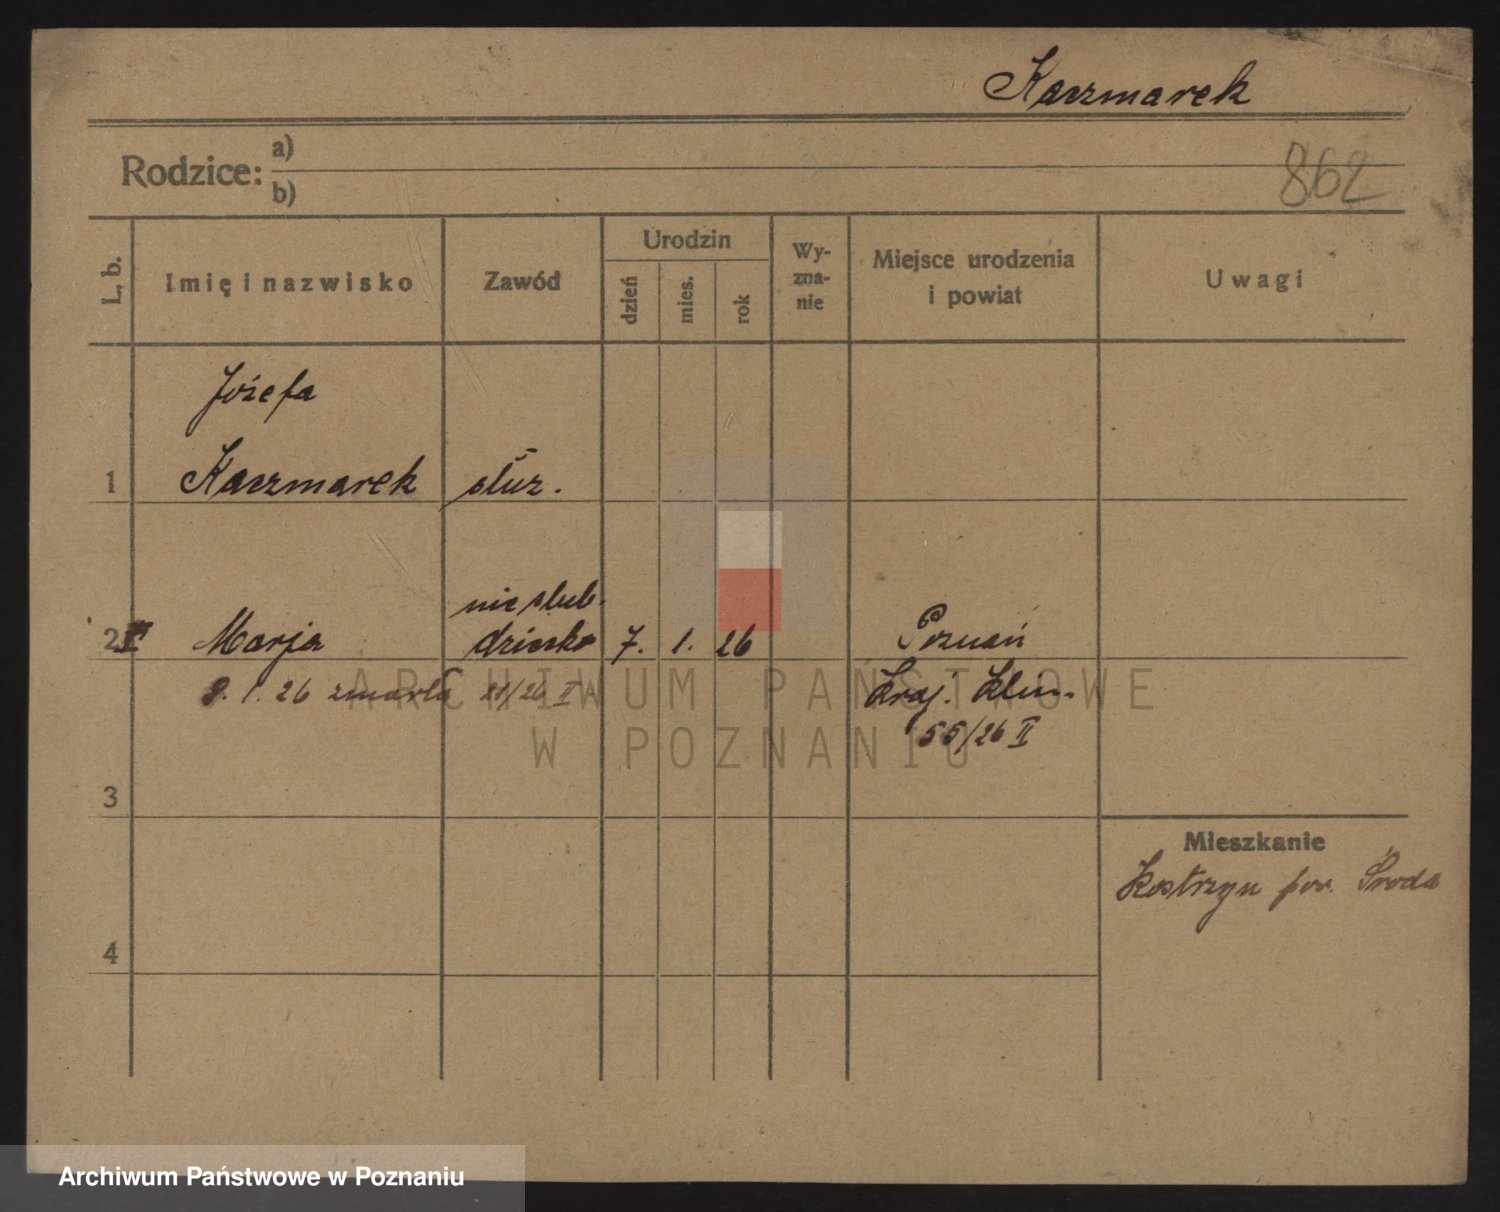 Kaczmarek
Rodzice: a)
b)
862
L. b.
Imię i nazwisko
Zawód
Urodzin
dzień
mies.
rok
Wy-
zna-
nie
Miejsce urodzenia
i powiat
Uwagi
Józefa
1 Kaczmarek służ.
nieślub.
2 Marja dziecko 7. 1. 26 Poznań
9. 1. 26 zmarła 21/26 I Kraj. Klin.
55/26 II
3
Mieszkanie
Kostrzyn pow. Środa
4
ARCHIWUM PAŃSTWOWE
W POZNANIU
Archiwum Państwowe w Poznaniu